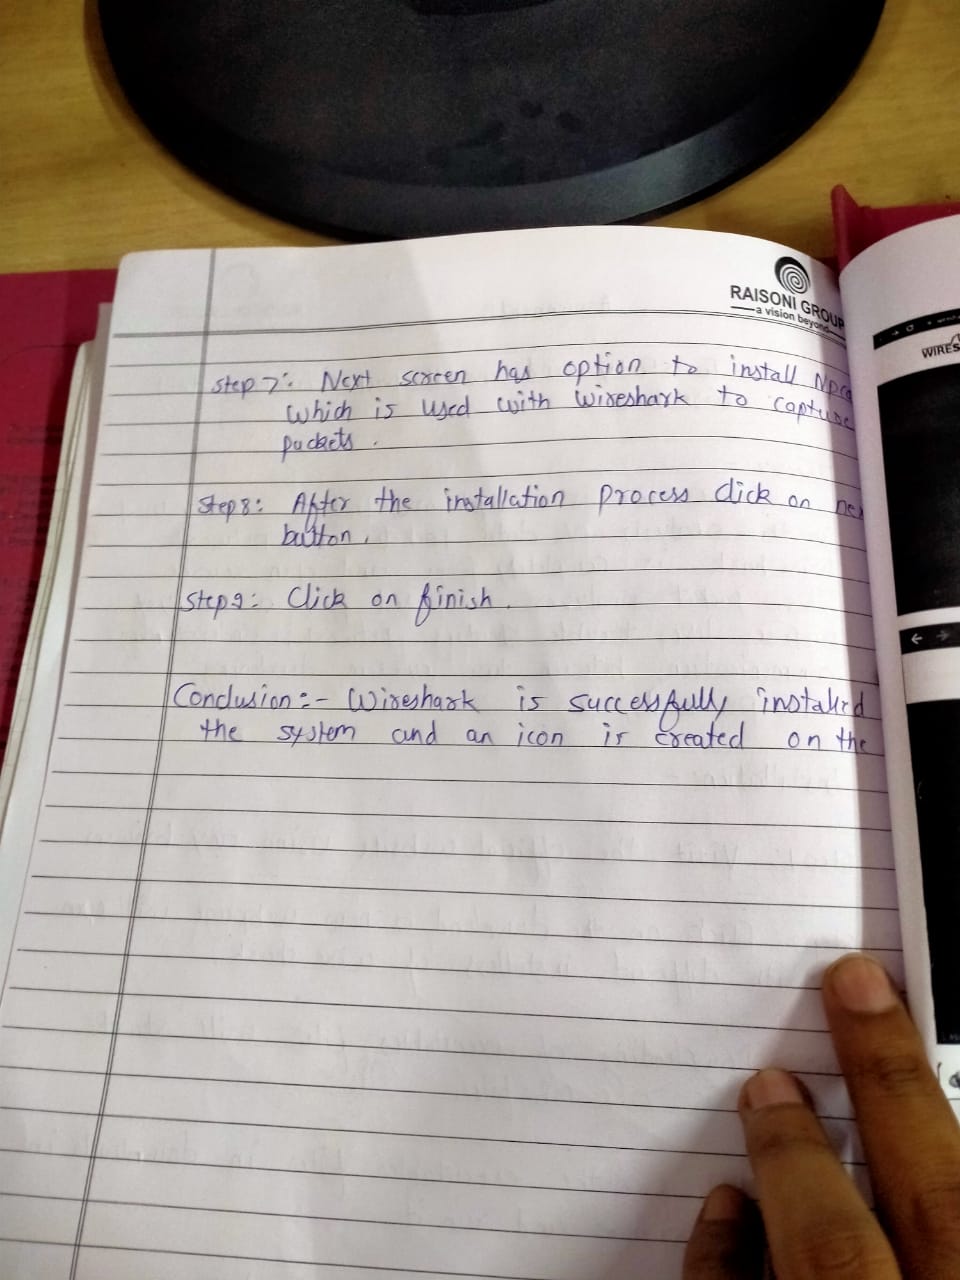 RAISONI GROUP
a vision beyond
WIRES
Step 7: Next screen has option to install Npca
which is used with wireshark to capture
packets.
Step 8: After the installation process click on nex
button.
Step 9: Click on finish.
Conclusion:- Wireshark is successfully installed
the system and an icon is created on the